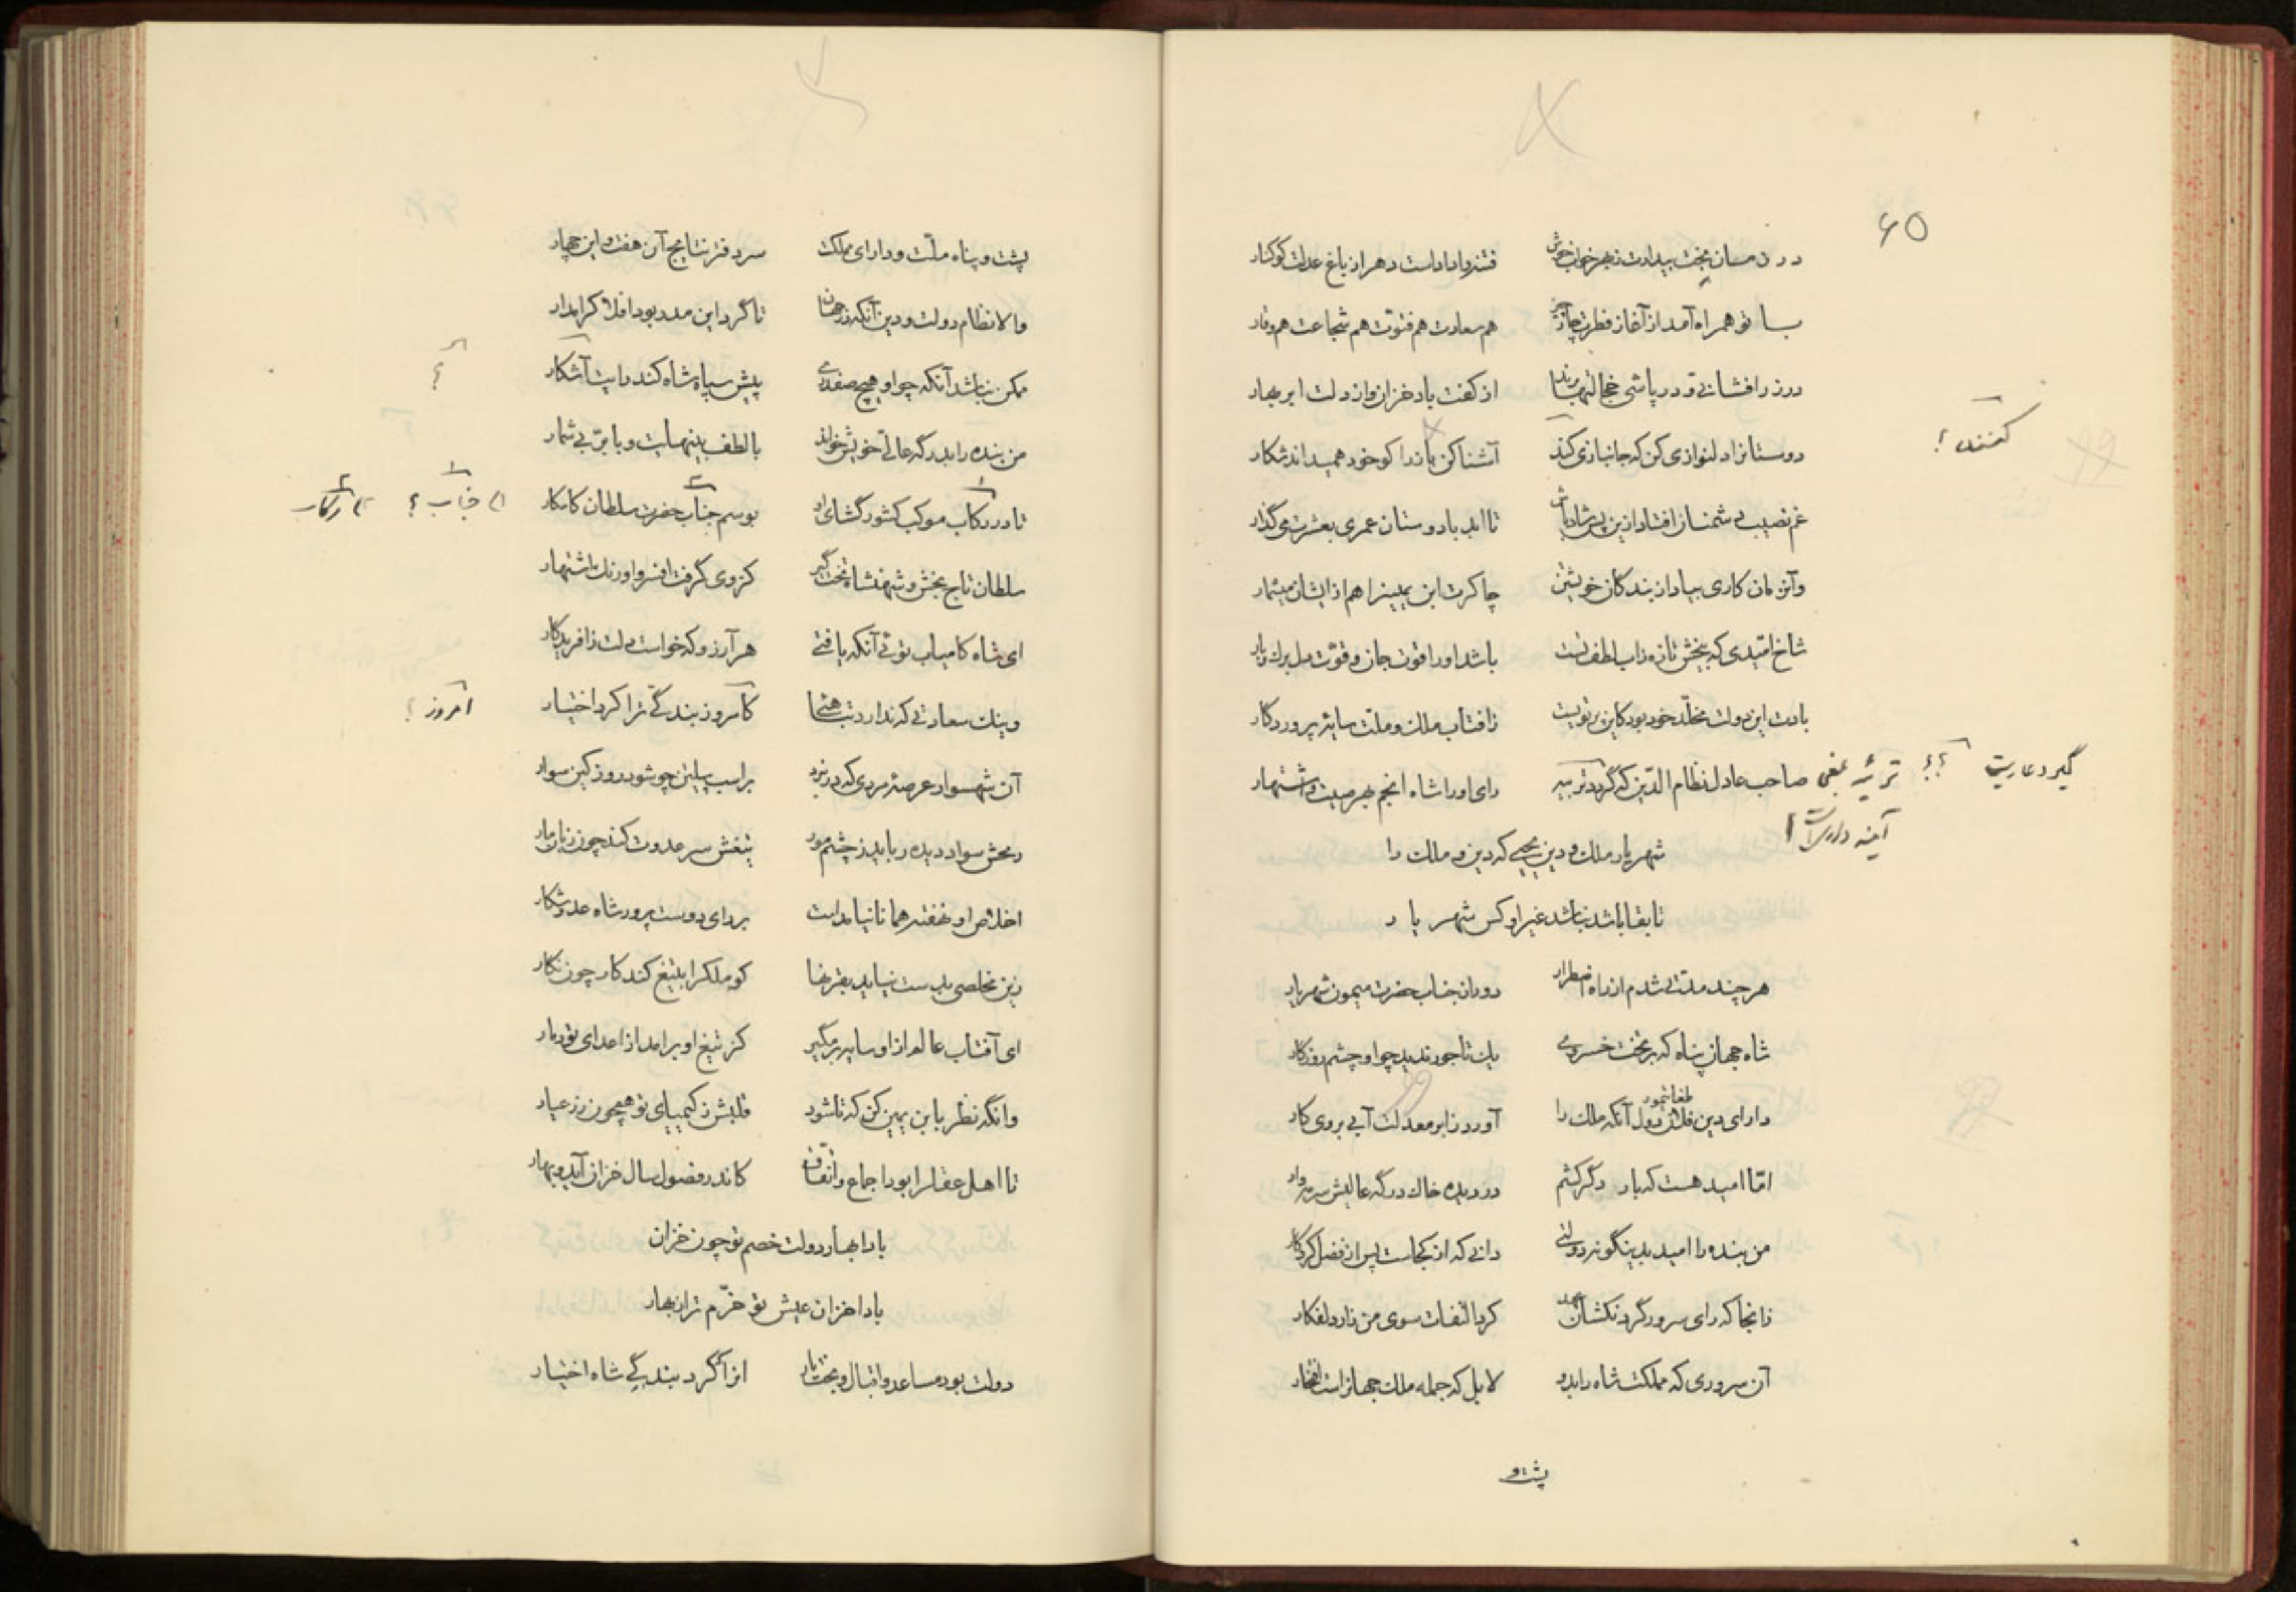 ۶۵
در زمان بخت بیدارت ز بهر خواب خوش فتنه را دادست دهر از باغ عدلت کوکنار
با تو همراه آمد از آغاز فطرت چار چیز هم سعادت هم فتوت هم شجاعت هم وقار
در زر افشانی و در پاشی خجالتها برند از کفت باد خزان و از دلت ابر بهار
دوستانرا دلنوازی کن که جانبازی کند آشنا کن باز را کو خود همیداند شکار
کنند ؟
غم نصیب دشمنان افتاد ازین پس شاد باش تا ابد با دوستان عمری بعشرت میگذار
وآن زمان کاری بیاد از بندگان خویشتن چاکرت ابن یمین را هم از ایشان میشمار
شاخ امیدی که بیخش تازه ز آب لطف تست باشد او را قوت جان و قوت دل برگ و بار
بادت این دولت مخلد خود بود کاین پرتویست ز آفتاب ملک و ملت سایۀ پروردگار
صاحب عادل نظام الدین که گردد تربیه رای او را شاه انجم بهر صیت و اشتهار
گیرد عاریت ؟؟
شهریار ملک و دین یحیی که دین و ملک را
تا بقا باشد نباشد غیر او کس شهریار
هر چند مدتی شدم از راه اضطرار دور از جناب حضرت میمون شهریار
شاه جهان پناه که بر تخت خسروی یک تاجور ندید چو او چشم روزگار
طغایتمور
دارای دین فلان دول آنکه ملک را آورد ز ابر معدلت آبی بروی کار
اما امید هست که بار دگر کشم در دیده خاک درگه عالیش سرمه وار
من بنده را امید بدینگونه دولتی دانی که از کجاست پس از فضل کردگار
ز آنجا که رای سرور گردنکشان عهد کرد التفات سوی من زار دلفکار
آن سروری که مملکت شاه را بدو لا بل که جمله ملک جهانراست افتخار
پشت و
پشت و پناه ملت و دارای مملکت سر دفتر نتایج آن هفت و این چهار
والا نظام دولت و دین آنکه در جهان تا گرد این مدر بود افلاک را مدار
ممکن نباشد آنکه چو او هیچ صفدری پیش سپاه شاه کند رایت آشکار
من بنده را بدرگه عالی خویش خواند با لطف بینهایت و با بر بی شمار
تا در رکاب موکب کشور گشای او بوسم جناب حضرت سلطان کامکار
۱) جناب ؟ ۲) رکاب
سلطان تاج بخش و شهنشاه تخت گیر کز وی گرفت افسر و اورنگ اشتهار
ای شاه کامیاب توئی آنکه یافتی هر آرزو که خواست دلت ز آفریدگار
وینک سعادتی که ندارد نهایتها کامروز بندگی ترا کرد اختیار
امروز ؟
آن شهسوار عرصۀ مردی که در نبرد بر اسب پیلتن چو شود روز کین سوار
رمحش سواد دیده رباید ز چشم مور تیغش سر عدوت کند چون زبان مار
اخلاص او نهفته همانا نیامدست بر رای دوست پرور شاه عدو شکار
زین مخلصی بدست نیاید بقرنها کو ملک را بتیغ کند کار چون نگار
ای آفتاب عالم از او سایه بر مگیر کز تیغ او برآمد از اعدای تو دمار
وانگه نظر بابن یمین کن که تا شود قلبش ز کیمیای تو همچون زر عیار
تا اهل عقل را بود اجماع و اتفاق کاندر فصول سال خزان آید و بهار
بادا بهار دولت خصم تو چون خزان
بادا خزان عیش تو خرم تر از بهار
دولت بود مساعد و اقبال و بخت یار آنرا که کرد بندگی شاه اختیار